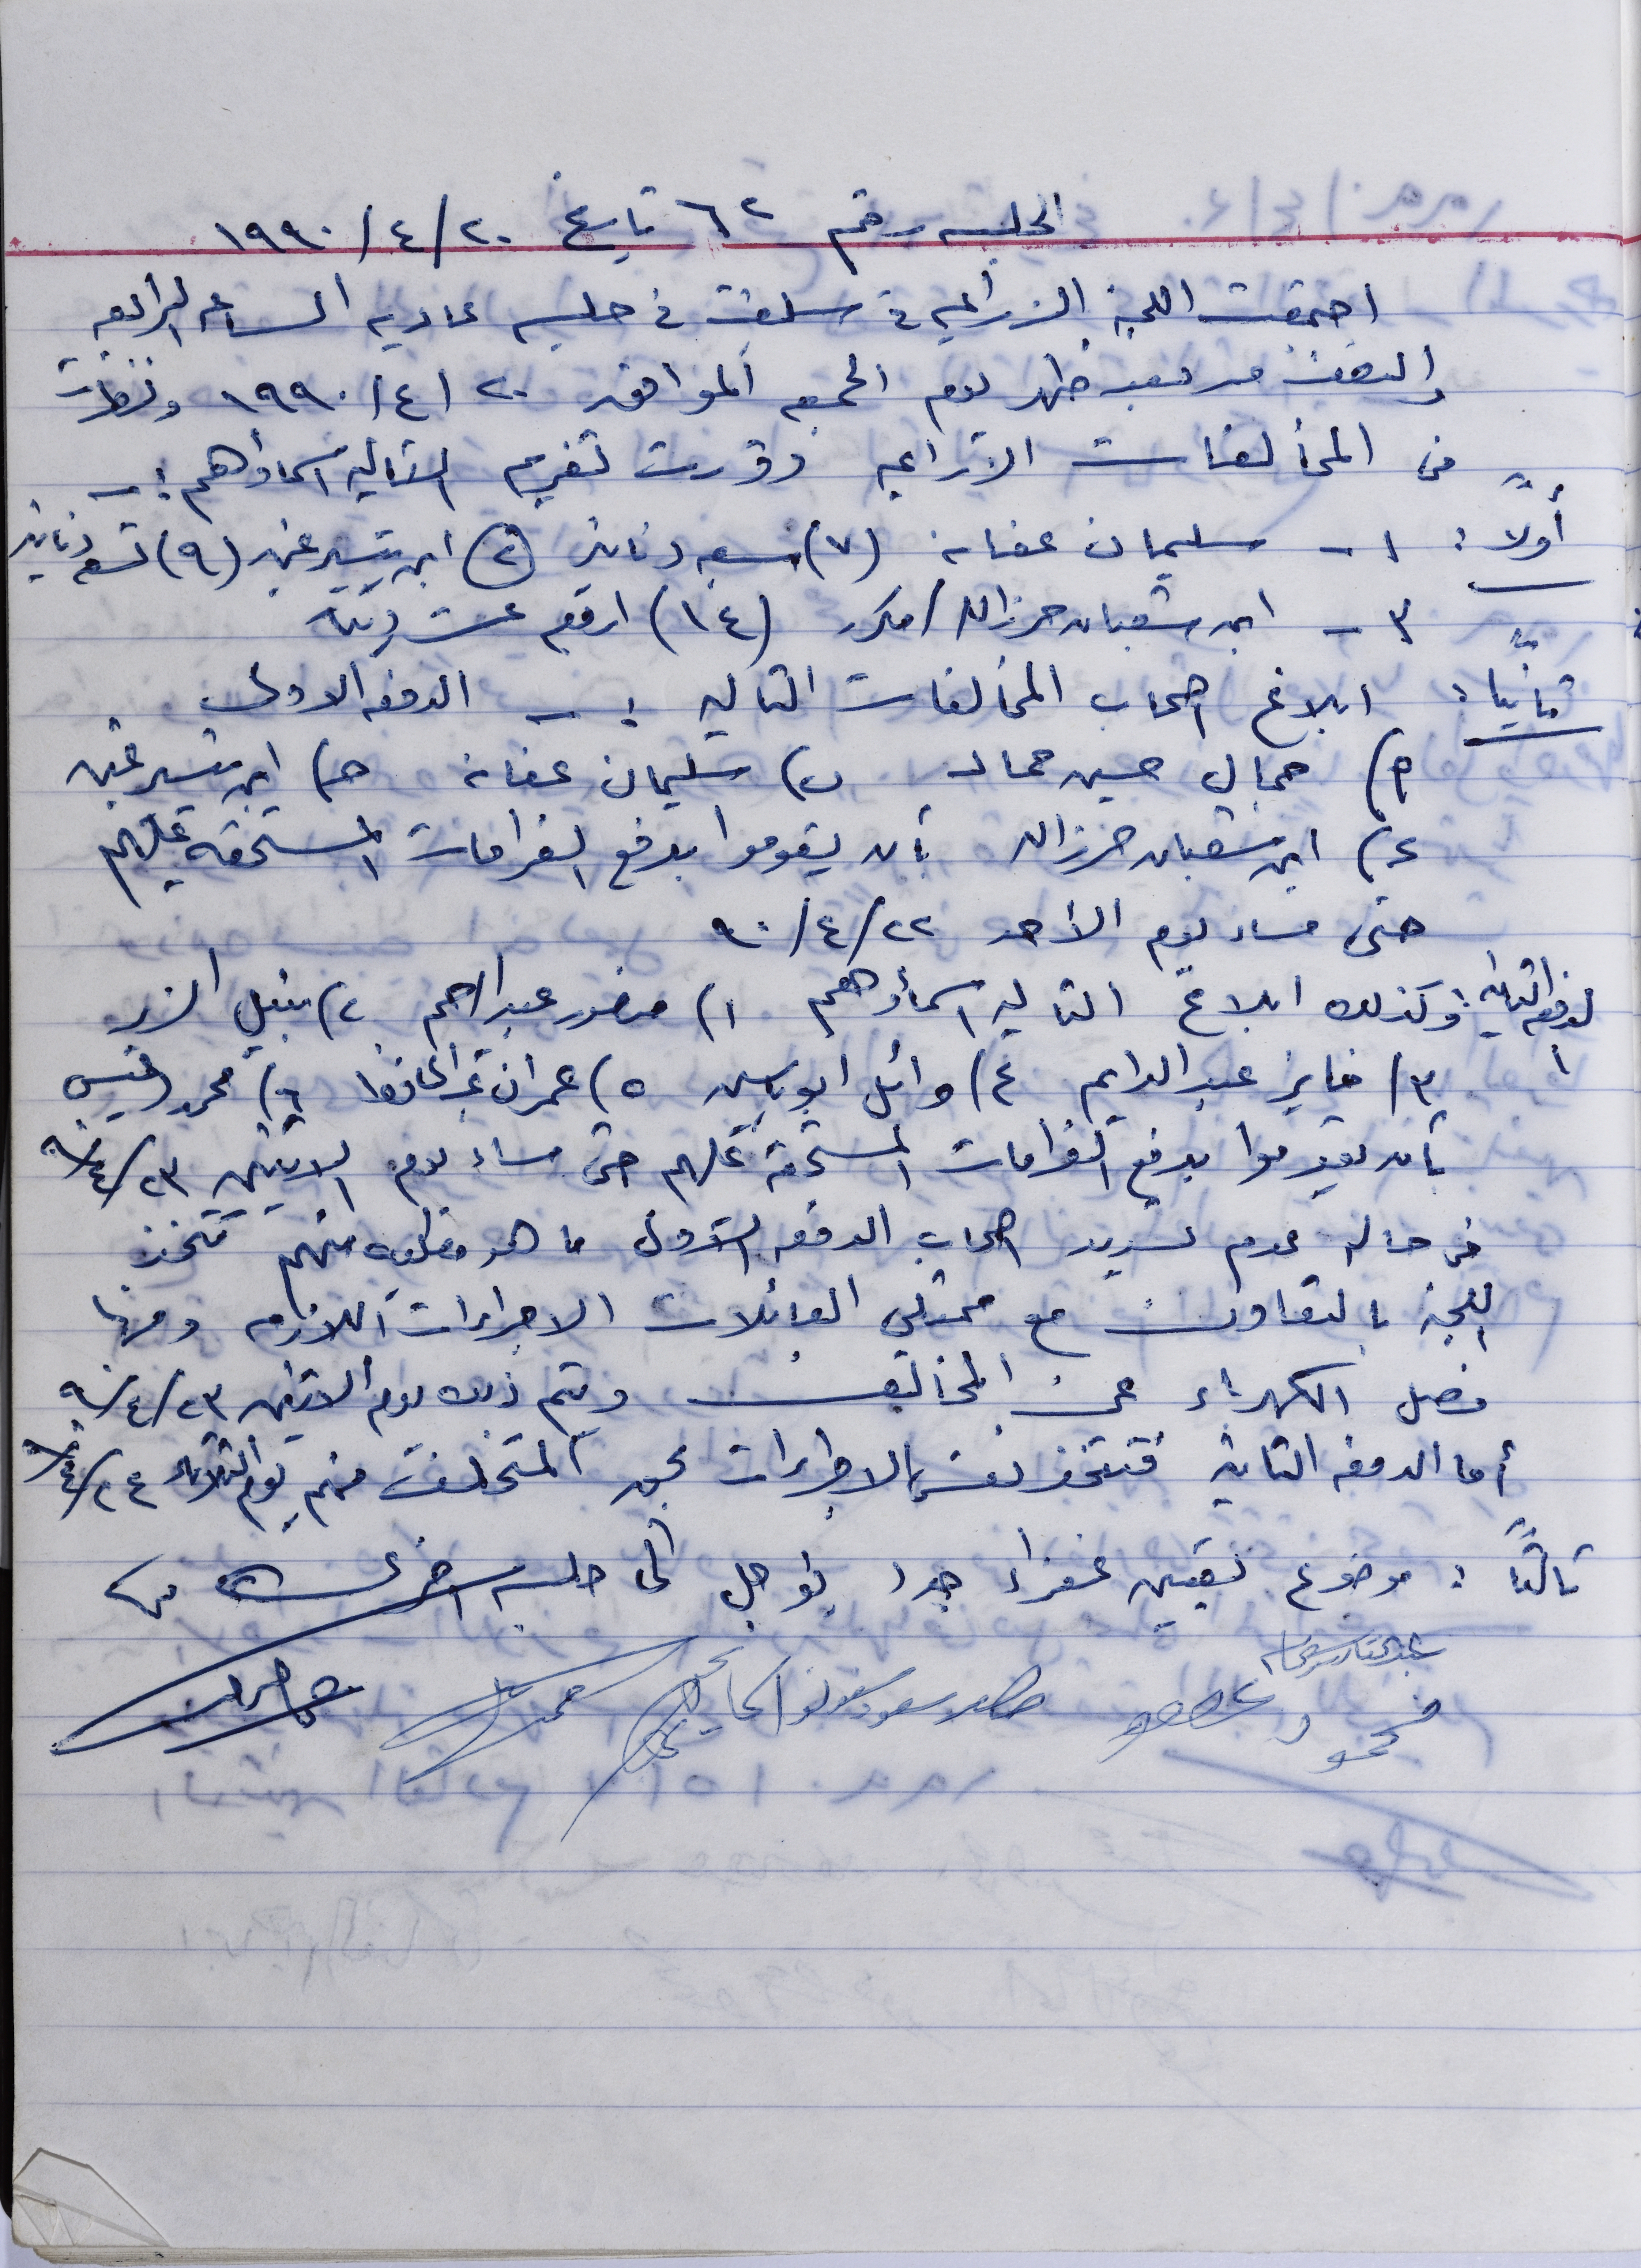 الجلسه رقم ٦٢ تاريخ ٢٠/٤/١٩٩٠
اجتمعت اللجنة الزراعيه في سلفيت في جلسه عاديه الساعه الرابعه
والنصف من بعد ظهر يوم الجمعه الموافق ٢٠/٤/١٩٩٠ ونظرت
في المخالفات الزراعيه وقررت تغريم التاليه اسماؤهم :-
أولاً : ١ - سليمان عفانه (٧) سبعه دنانير (٢) ابن تيسير غني (٩) تسعه دنانير
٣ - ابن شعبان حرزالله / مكرر (١٤) اربع عشر دينار
ثانياً : ابلاغ اصحاب المخالفات التاليه :- الدفعه الاولى
أ) جمال حسين حماد ب) سليمان عفانه ح) ابن تيسير غني
ء) ابن شعبان حرزالله بان يقوموا بدفع الغرامات المستحقه عليهم
حتى مساء يوم الأحد ٢٢/٤/٩٠
الدفعه الثانيه : وكذلك ابلاغ التاليه اسماؤهم ١) منصور عبدالرحيم ٢) نبيل الزير
٣) فايز عبد الدايم ٤) وائل ابو ياسين ٥) عمران عبد الحافظ ٦) محمد
بان يقوموا بدفع الغرامات المستحقه عليهم حتى مساء يوم الاثنين ٢٣/٤/٩٠
في حاله عدم تسديد اصحاب الدفعه الاولى ما هو مطلوب منهم تتخذ
اللجنه بالتعاون مع ممثلي العائلات الاجراءات اللازمه ومنها
فصل الكهرباء عن المخالف ويتم ذلك يوم الاثنين ٢٣/٤/٩٠
أما الدفعه الثانيه فتتخذ نفس الاجراءات بحق المتخلف منهم يوم الثلاثاء ٢٤/٤/٩٠
ثالثاً : موضوع تعيين غفراء جدد يؤجل الى جلسه اخرى
محمود